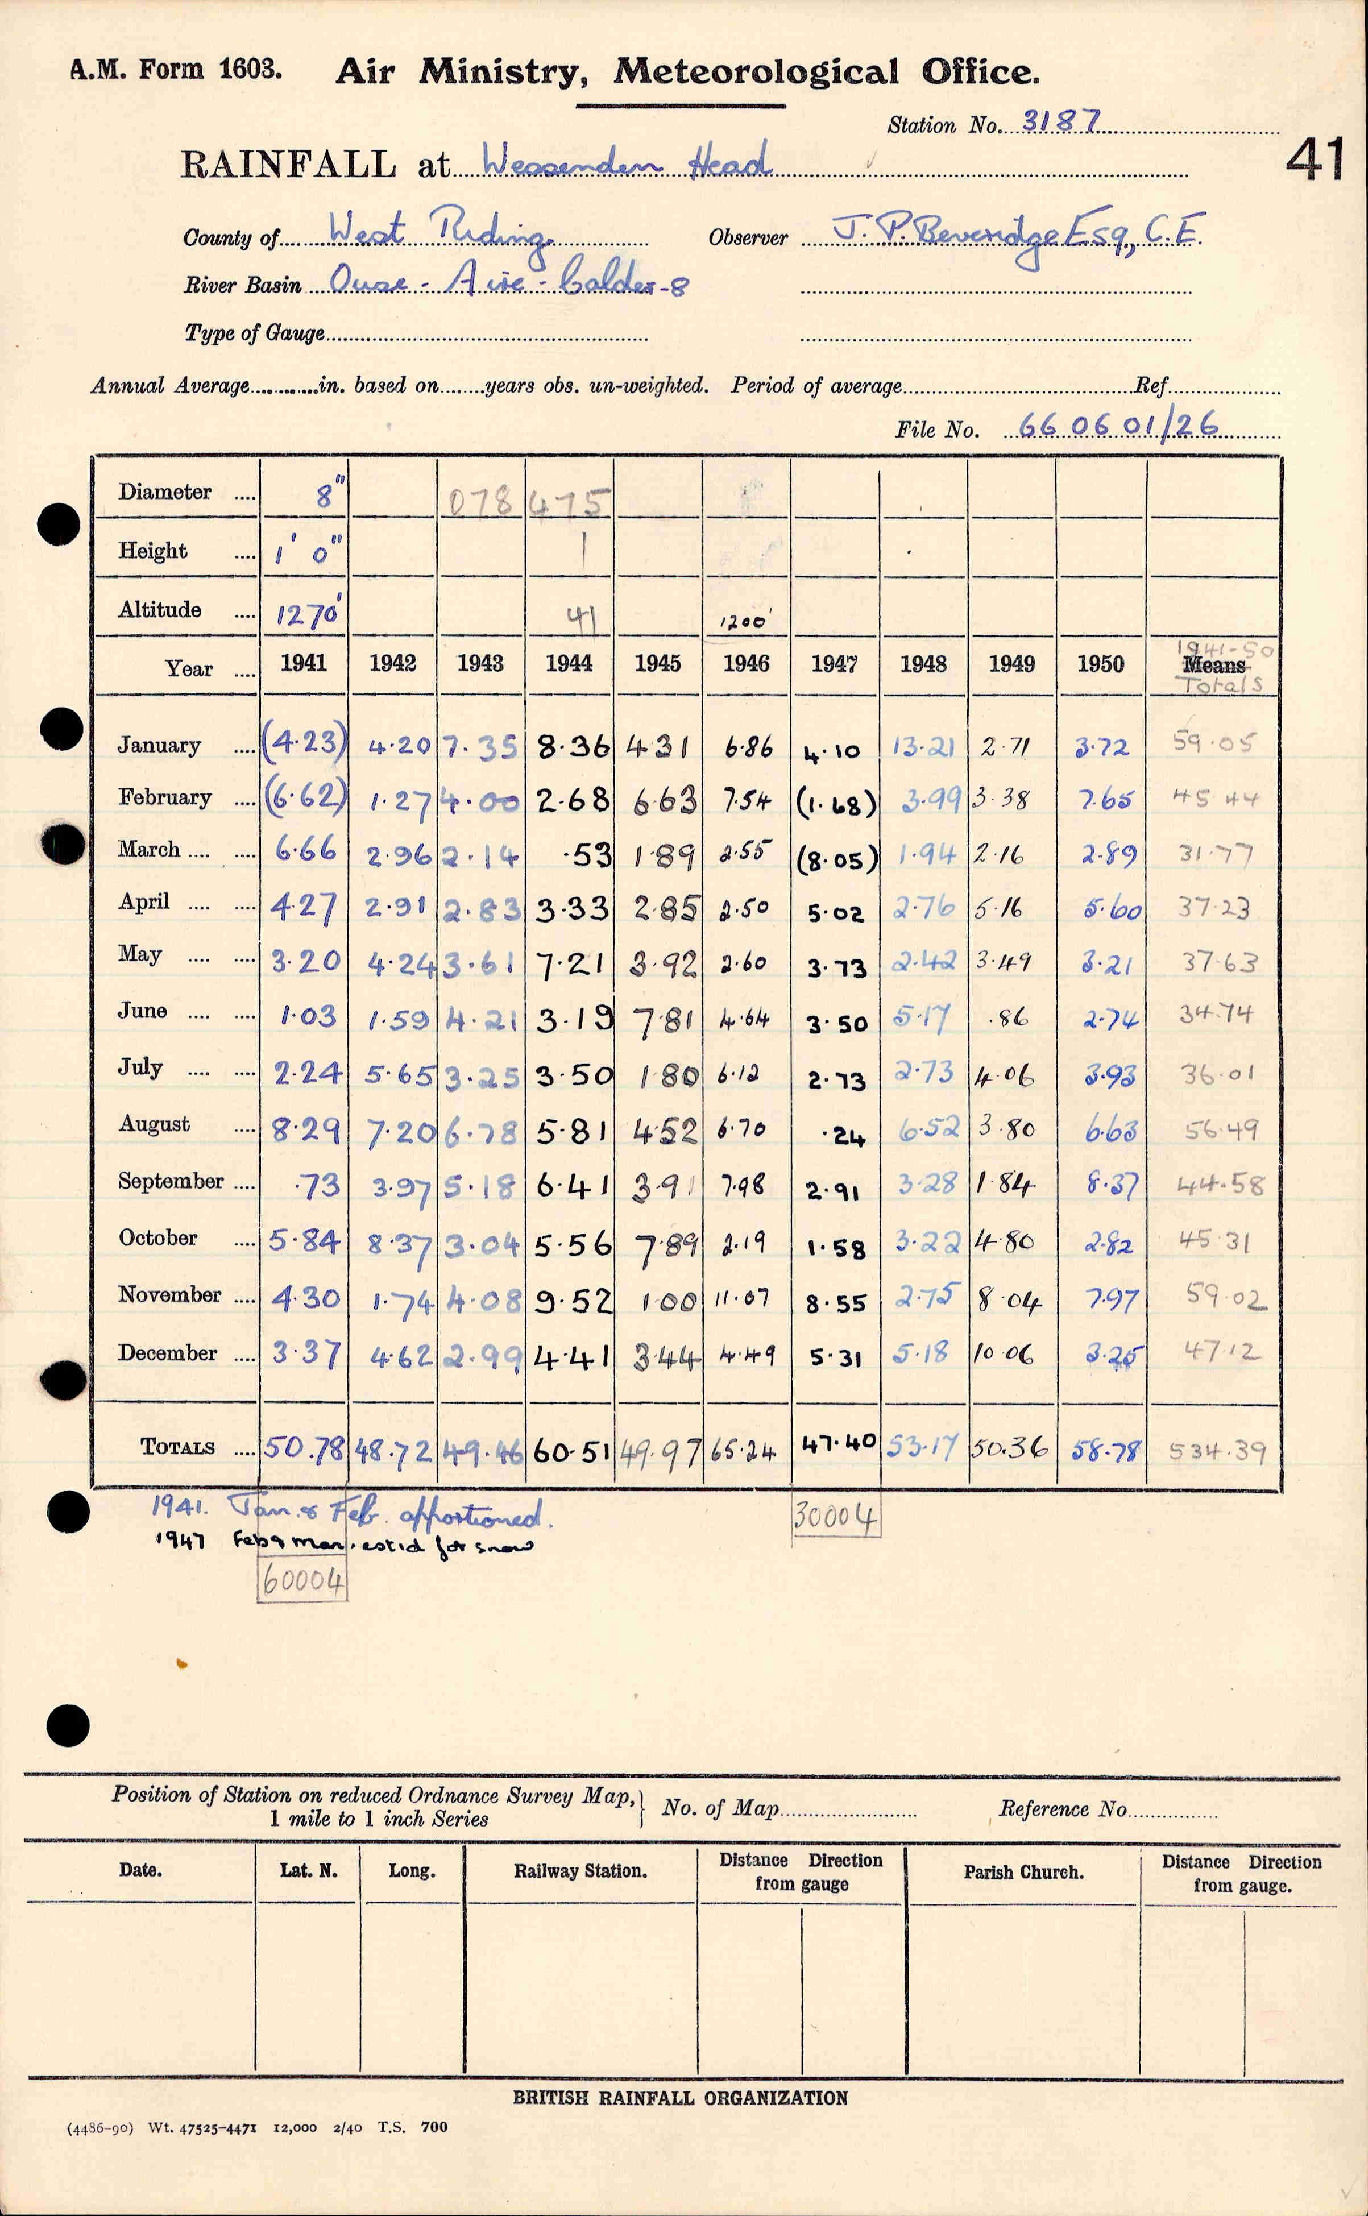 A.M. Form 1603. Air Ministry, Meteorological Office.
Station No. 3187
41
RAINFALL at Wessenden Head
County of West Riding Observer J. P. Beveridge Esq., C.E.
River Basin Ouse - Aire - Calder-8
Type of Gauge
Annual Average in. based on years obs. un-weighted. Period of average Ref
File No. 66 06 01/26
Diameter 8" 078 475
Height 1' 0" 1
Altitude 1270' 41 1200'
1941-50
Year 1941 1942 1943 1944 1945 1946 1947 1948 1949 1950 Means
Totals
January (4.23) 4.20 7.35 8.36 4.31 6.86 4.10 13.21 2.71 3.72 59.05
February (6.62) 1.27 4.00 2.68 6.63 7.54 (1.68) 3.99 3.38 7.65 45.44
March 6.66 2.96 2.14 .53 1.89 2.55 (8.05) 1.94 2.16 2.89 31.77
April 4.27 2.91 2.83 3.33 2.85 2.50 5.02 2.76 5.16 5.60 37.23
May 3.20 4.24 3.61 7.21 3.92 2.60 3.73 2.42 3.49 3.21 37.63
June 1.03 1.59 4.21 3.19 7.81 4.64 3.50 5.17 .86 2.74 34.74
July 2.24 5.65 3.25 3.50 1.80 6.12 2.73 2.73 4.06 3.93 36.01
August 8.29 7.20 6.78 5.81 4.52 6.70 .24 6.52 3.80 6.63 56.49
September .73 3.97 5.18 6.41 3.91 7.98 2.91 3.28 1.84 8.37 44.58
October 5.84 8.37 3.04 5.56 7.89 2.19 1.58 3.22 4.80 2.82 45.31
November 4.30 1.74 4.08 9.52 1.00 11.07 8.55 2.75 8.04 7.97 59.02
December 3.37 4.62 2.99 4.41 3.44 4.49 5.31 5.18 10.06 3.25 47.12
TOTALS 50.78 48.72 49.46 60.51 49.97 65.24 47.40 53.17 50.36 58.78 534.39
1941. Jan. & Feb. apportioned. 30004
1947 Feb & Mar. estd for snow
60004
Position of Station on reduced Ordnance Survey Map, } No. of Map Reference No.
1 mile to 1 inch Series
Date. Lat. N. Long. Railway Station. Distance Direction from gauge Parish Church. Distance Direction from gauge.
BRITISH RAINFALL ORGANIZATION
(4486-90) Wt. 47525-4471 12,000 2/40 T.S. 700